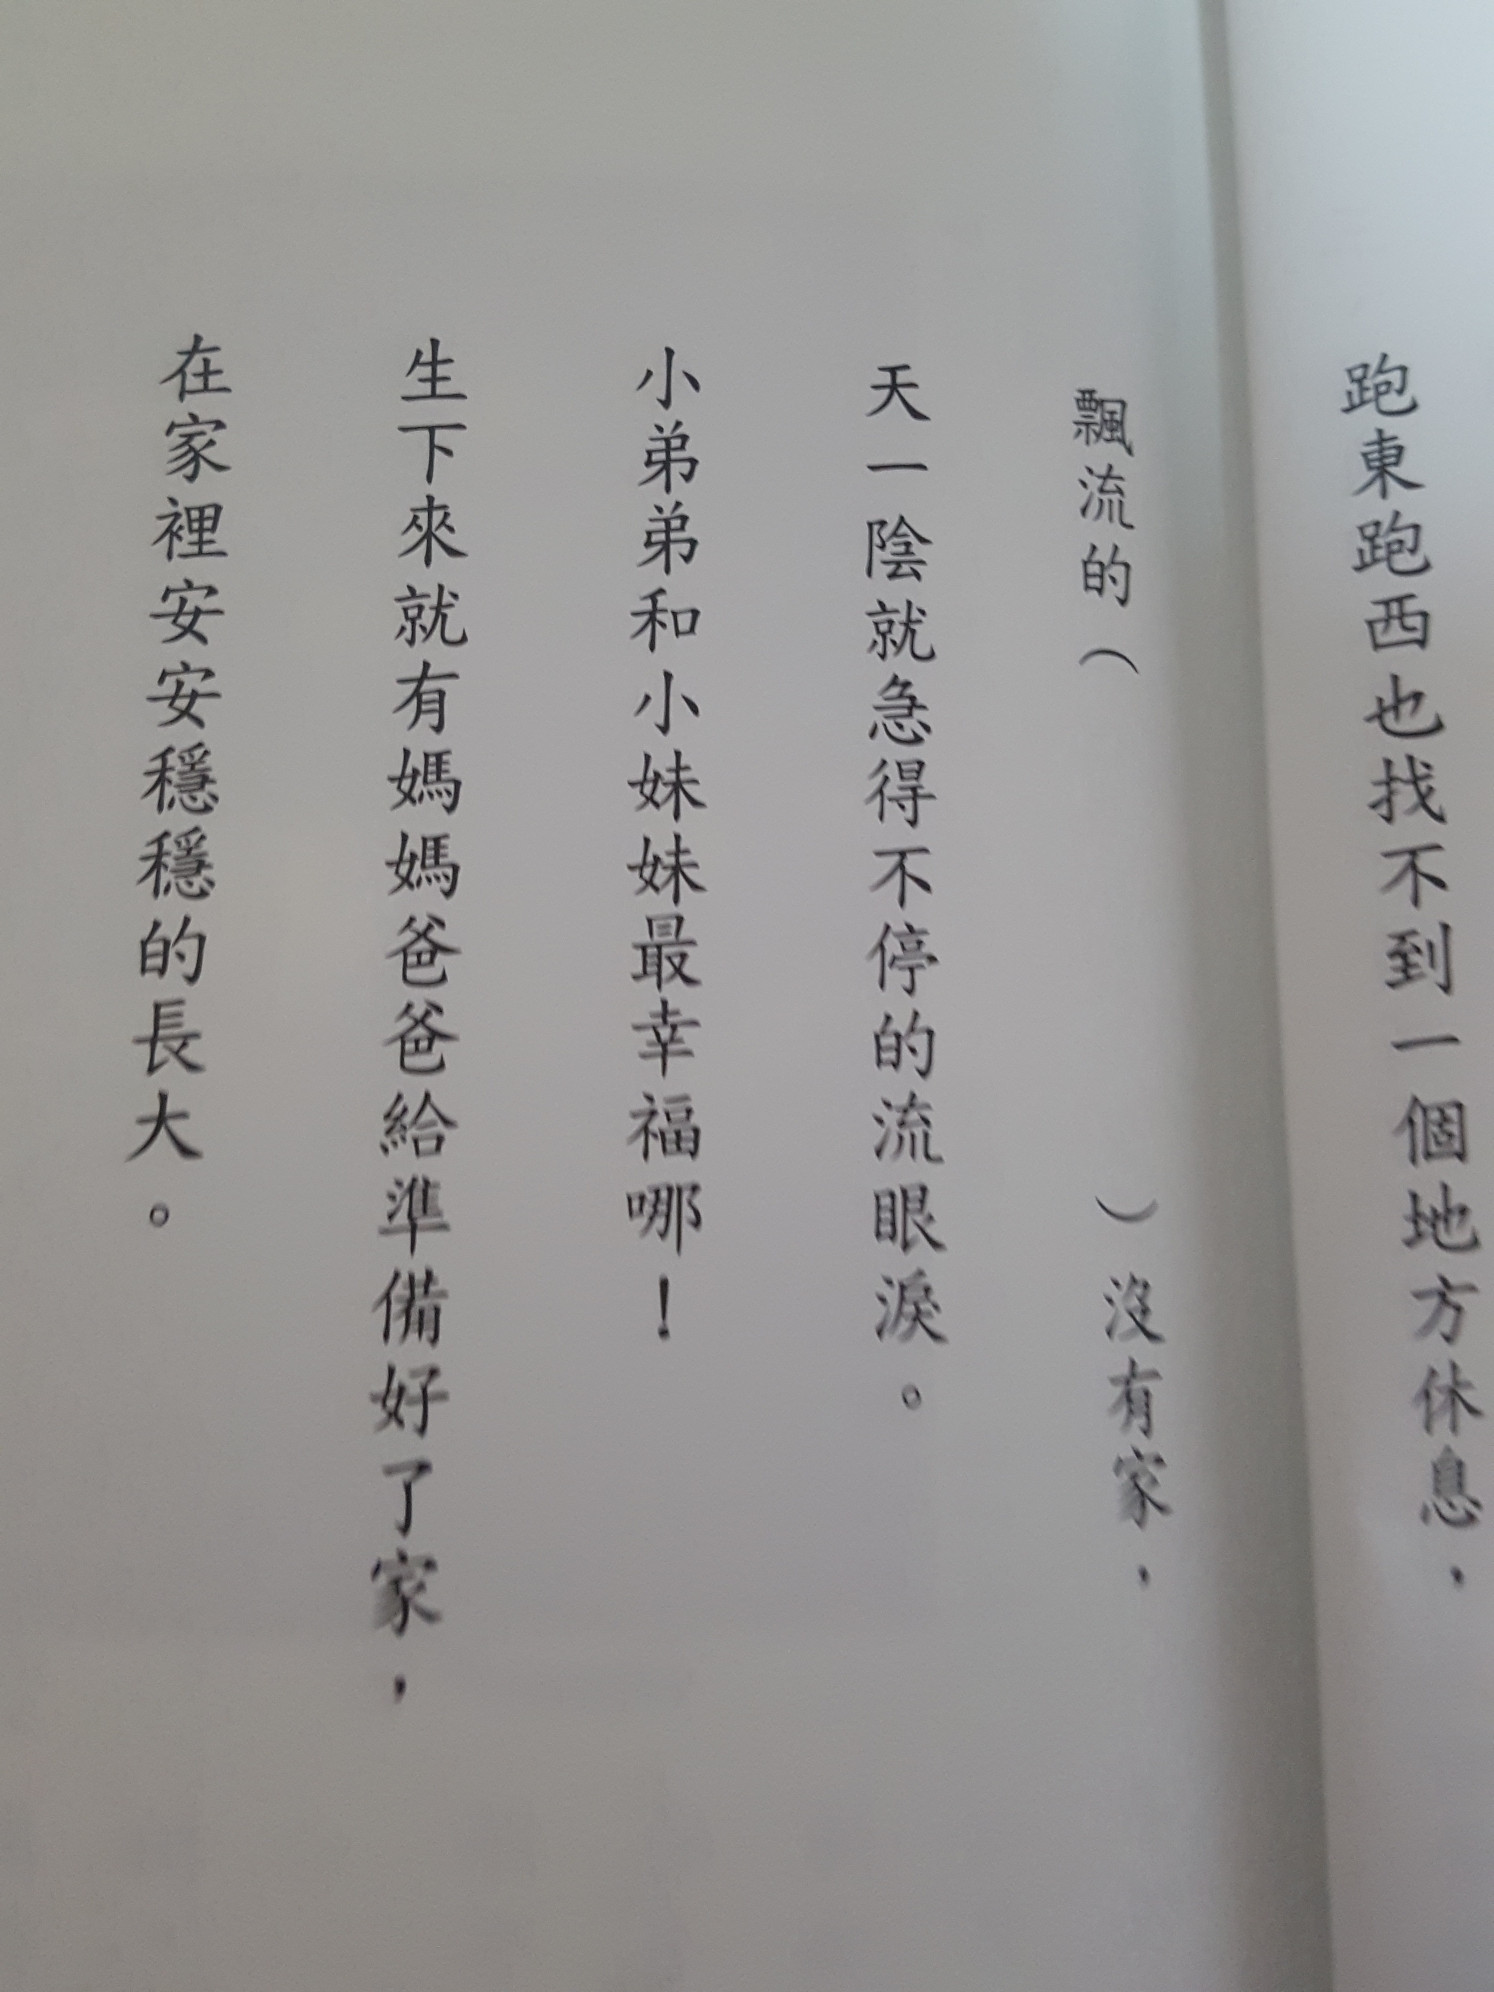 跑東跑西也找不到一個地方休息，
飄流的（　　　　　　）沒有家，
天一陰就急得不停的流眼淚。
小弟弟和小妹妹最幸福哪！
生下來就有媽媽爸爸給準備好了家，
在家裡安安穩穩的長大。